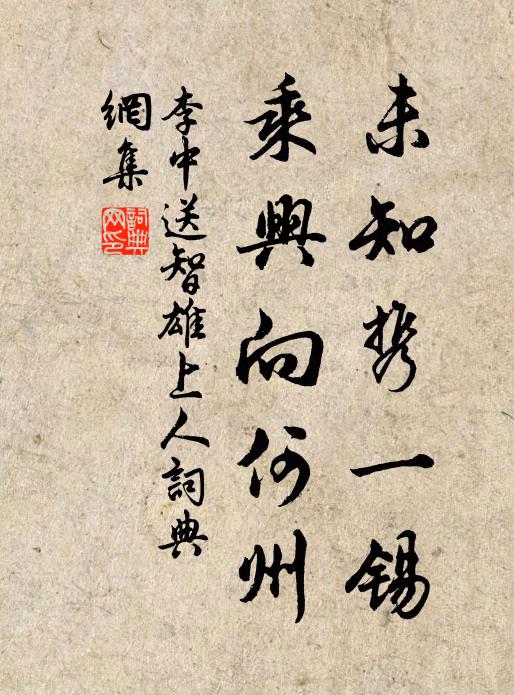 未知携一錫
乘興向何州
李中送智雄上人詞典
網集
詞典
網印